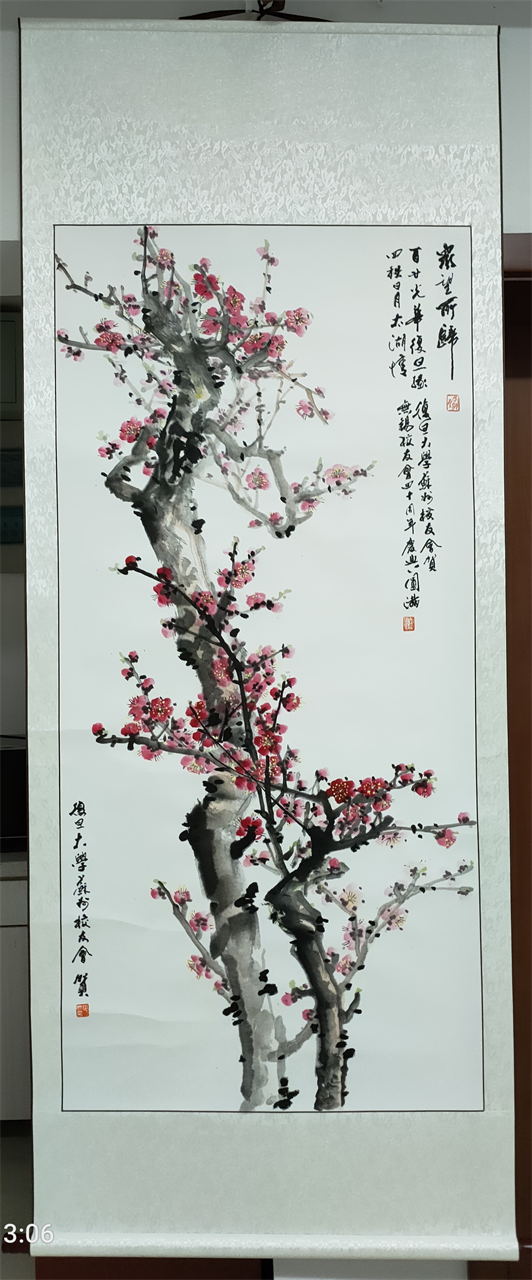 眾望所歸
百廿光華復旦緣
四秩日月太湖情
復旦大學蘇州校友會賀
無錫校友會四十周年慶典圓滿
復旦大學蘇州校友會 賀
3:06